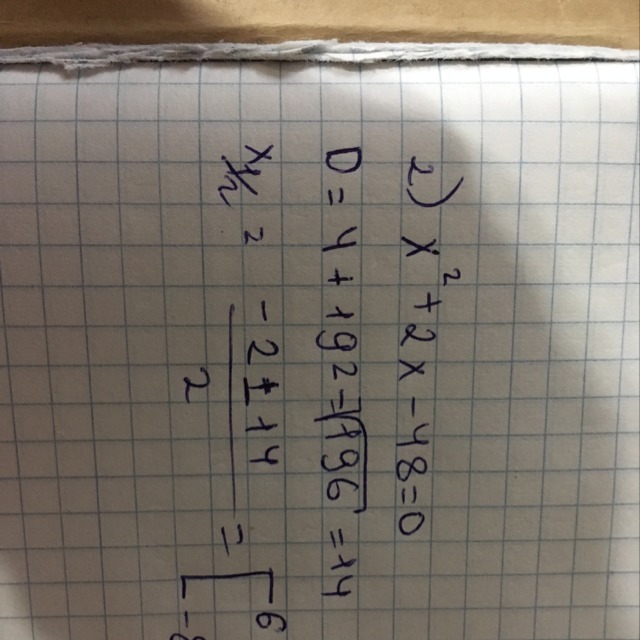 2) x² + 2x - 48 = 0
D = 4 + 192 = √196 = 14
x½ = -2 ± 14 / 2 = [ 6 -8